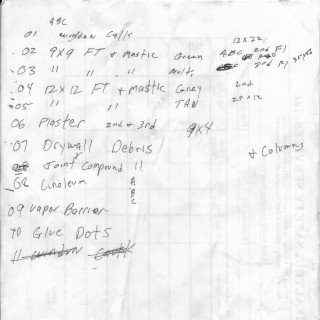 ABC
01 Window Calk
12x22
02 9x9 FT + Mastic Green ABC 2nd Fl
03 " " " Multi 2nd Fl
04 12x12 FT + Mastic Grey 2nd
05 " " TAN
06 Plaster 2nd + 3rd 9x4
07 Drywall Debris + Columns
Joint Compound 11
08 Linoleum A
B
C
09 Vapor Barrier
10 Glue Dots
11